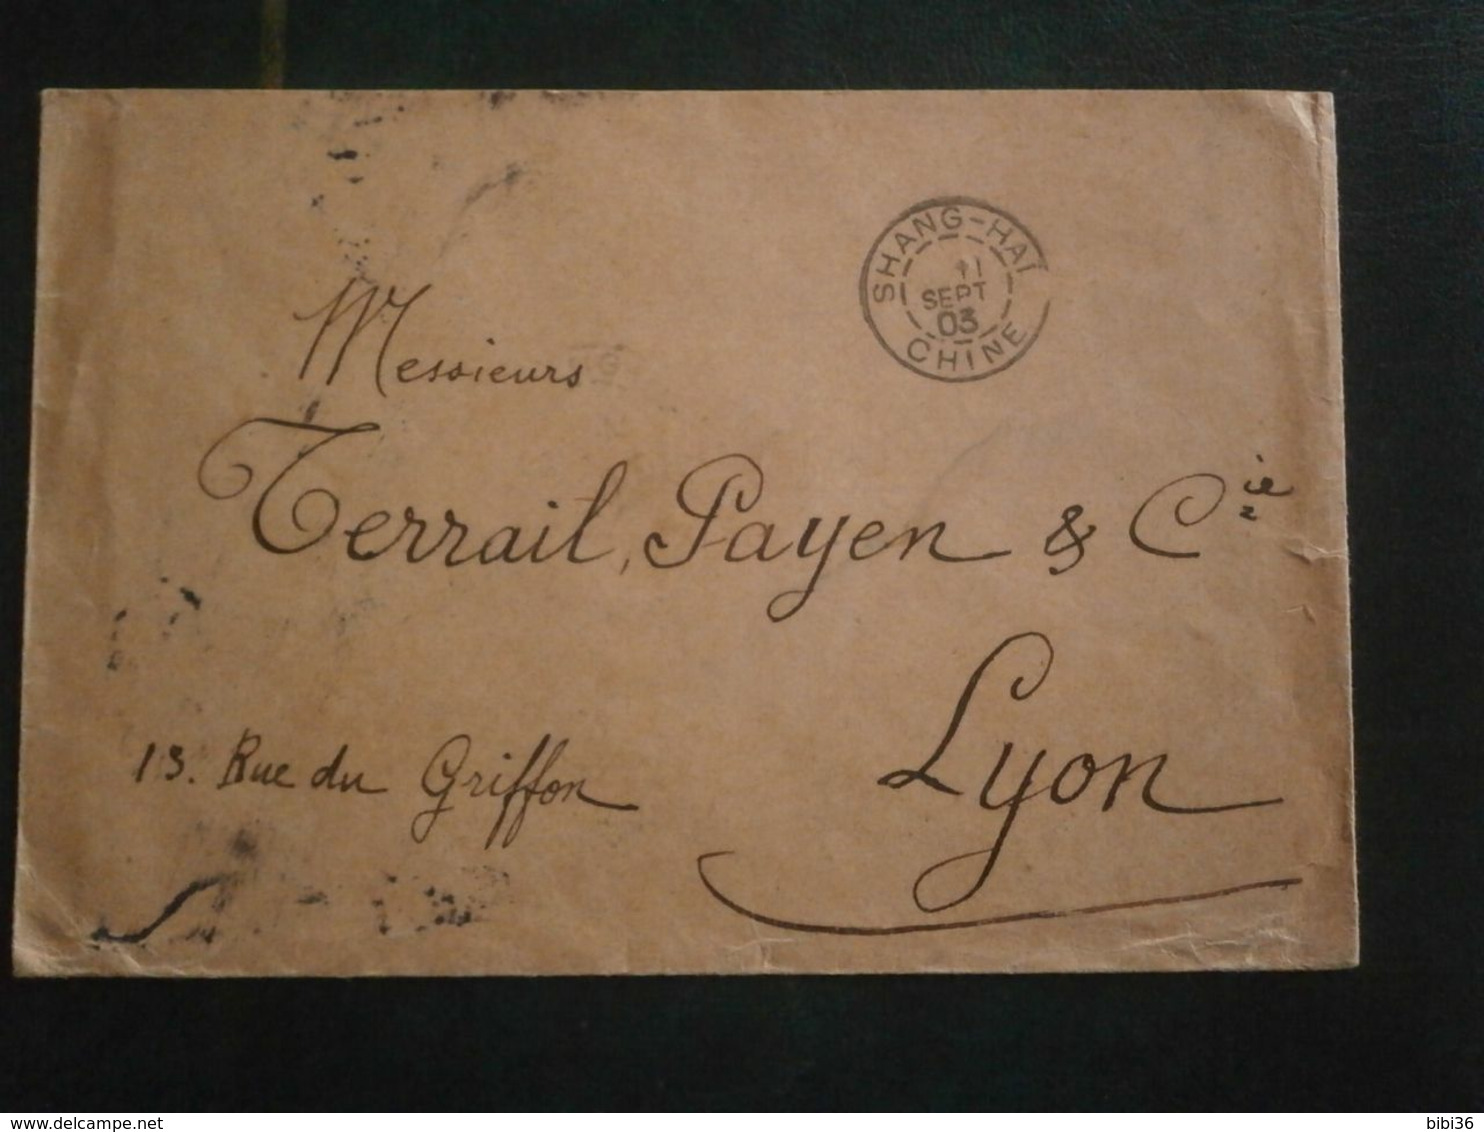 SHANG-HAÏ
11
SEPT
03
CHINE
Messieurs
Terrail, Payen & Cie
Lyon
13. Rue du Griffon
bibi36